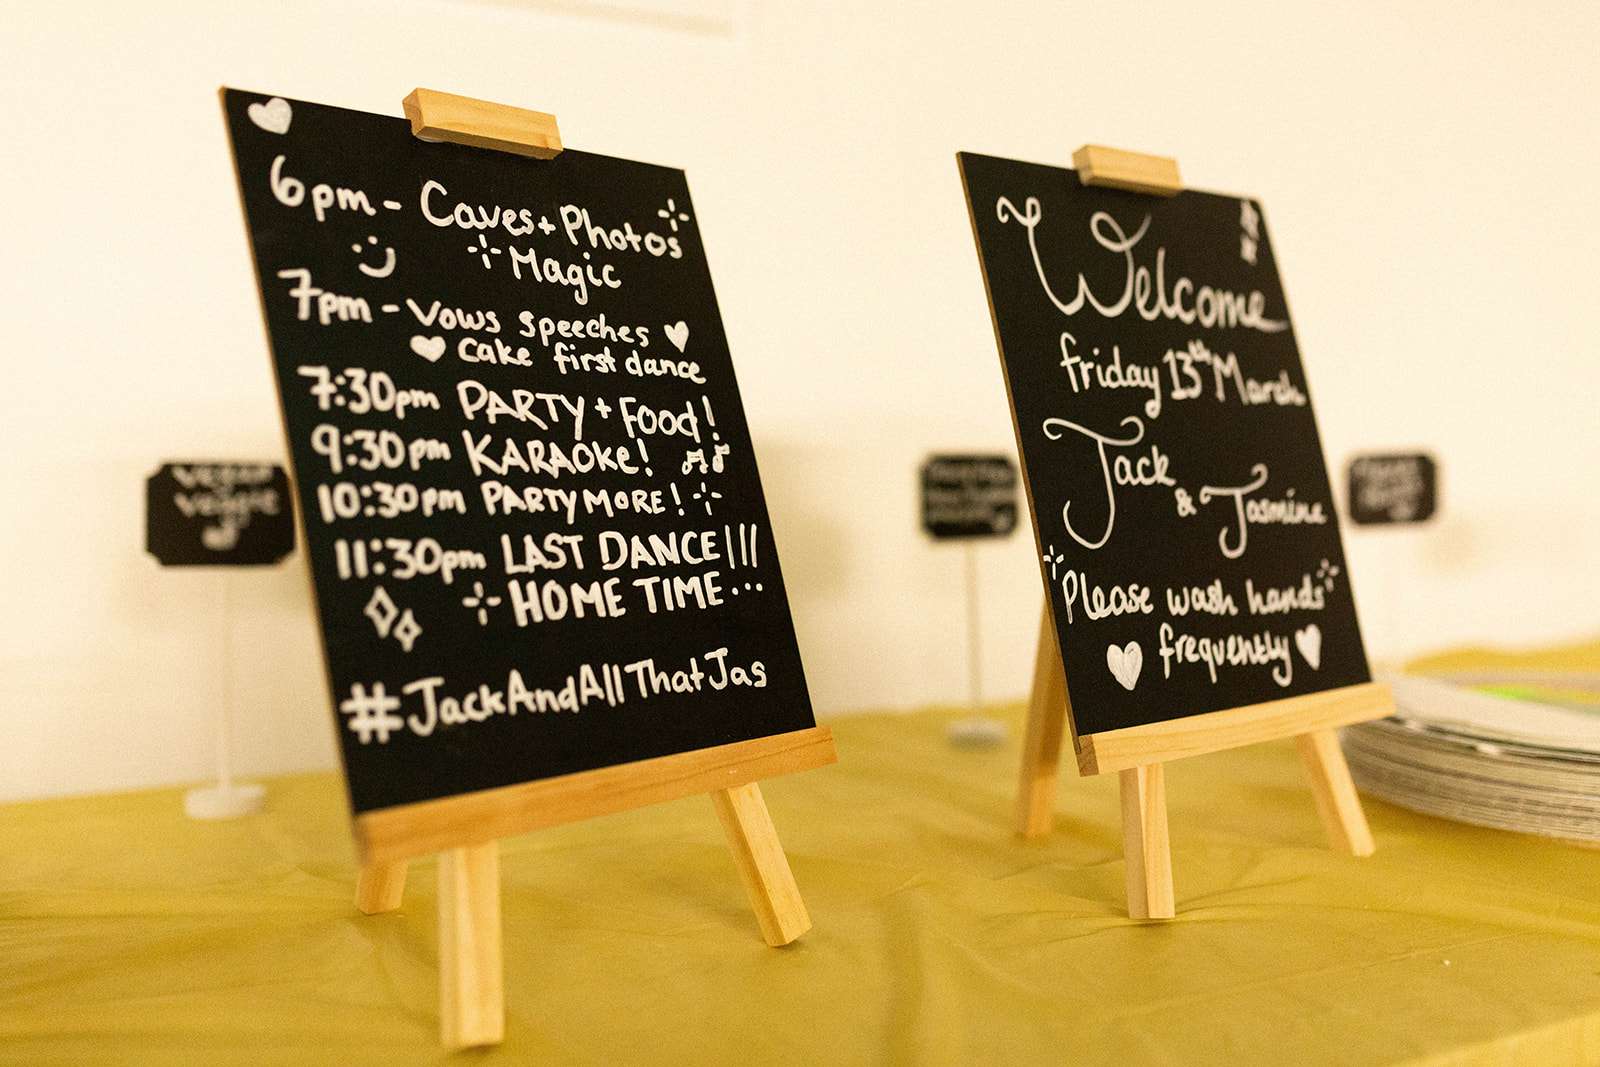 6pm - Caves + Photos
Magic
7pm - Vows speeches
cake first dance
7:30pm PARTY + Food!
9:30pm KARAOKE!
10:30pm PARTY MORE!
11:30pm LAST DANCE!!!
HOME TIME...
#JackAndAllThatJas
vegan
veggie
Welcome
friday 13th March
Jack
& Jasmine
Please wash hands
frequently